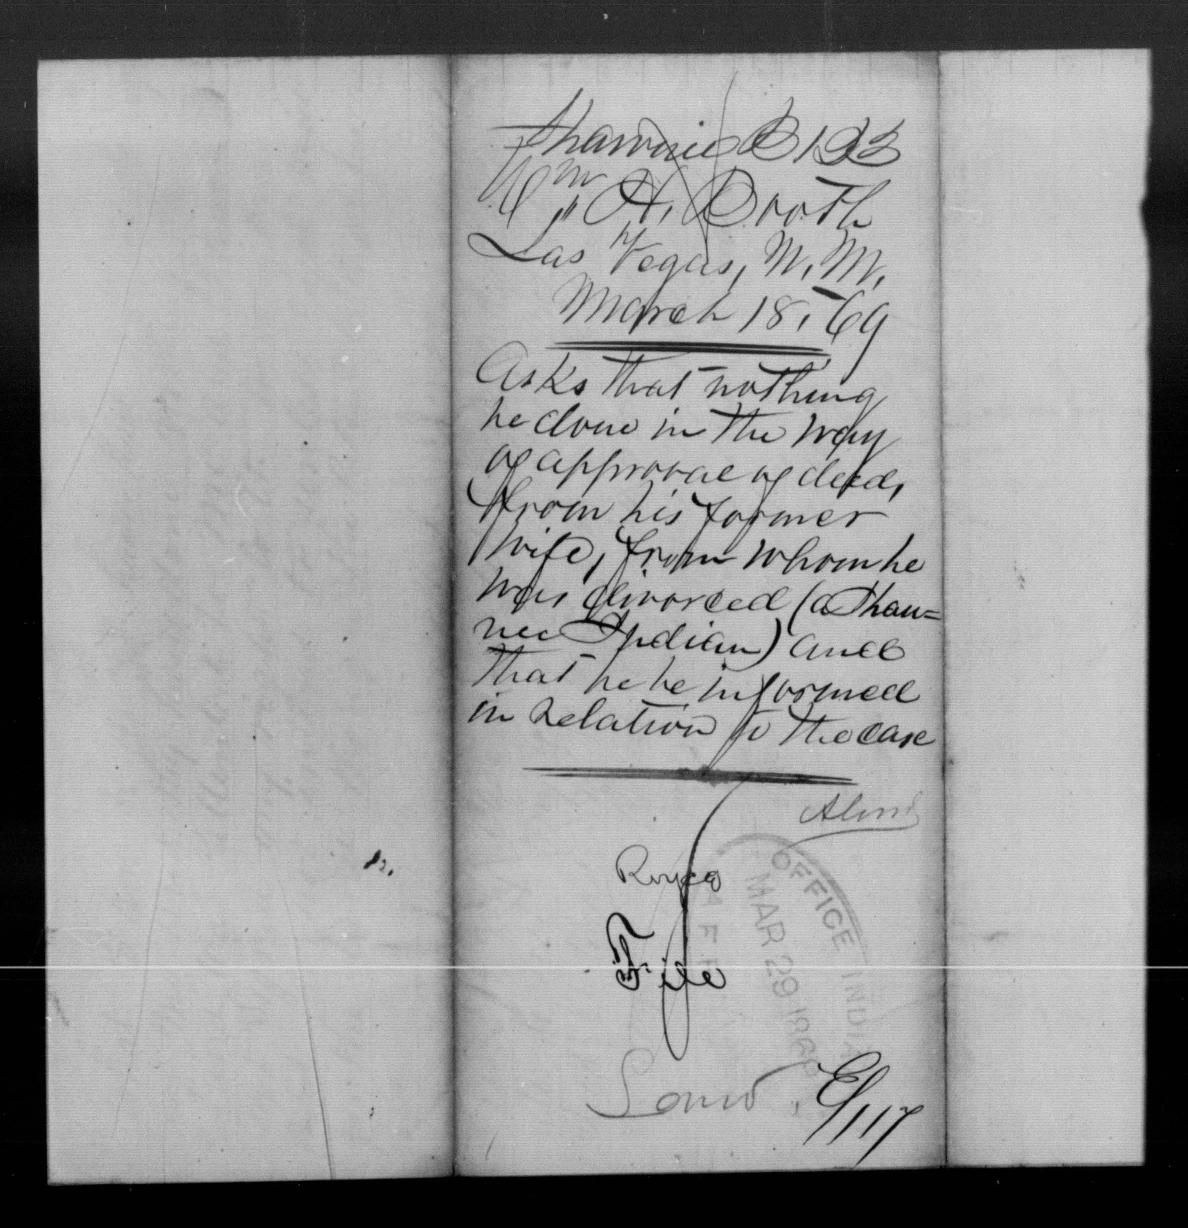 Shawnee B 193
Wm H. Booth
Las Vegas, N. M.
March 18, -69
Asks that nothing
be done in the way
of approval of deed,
from his former
wife, from whom he
was divorced (a Shaw=
nee Indian) and
that he be informed
in relation to the case
Royce
File
OFFICE INDIA
MAR 29 1869
AFF
Land
E/117